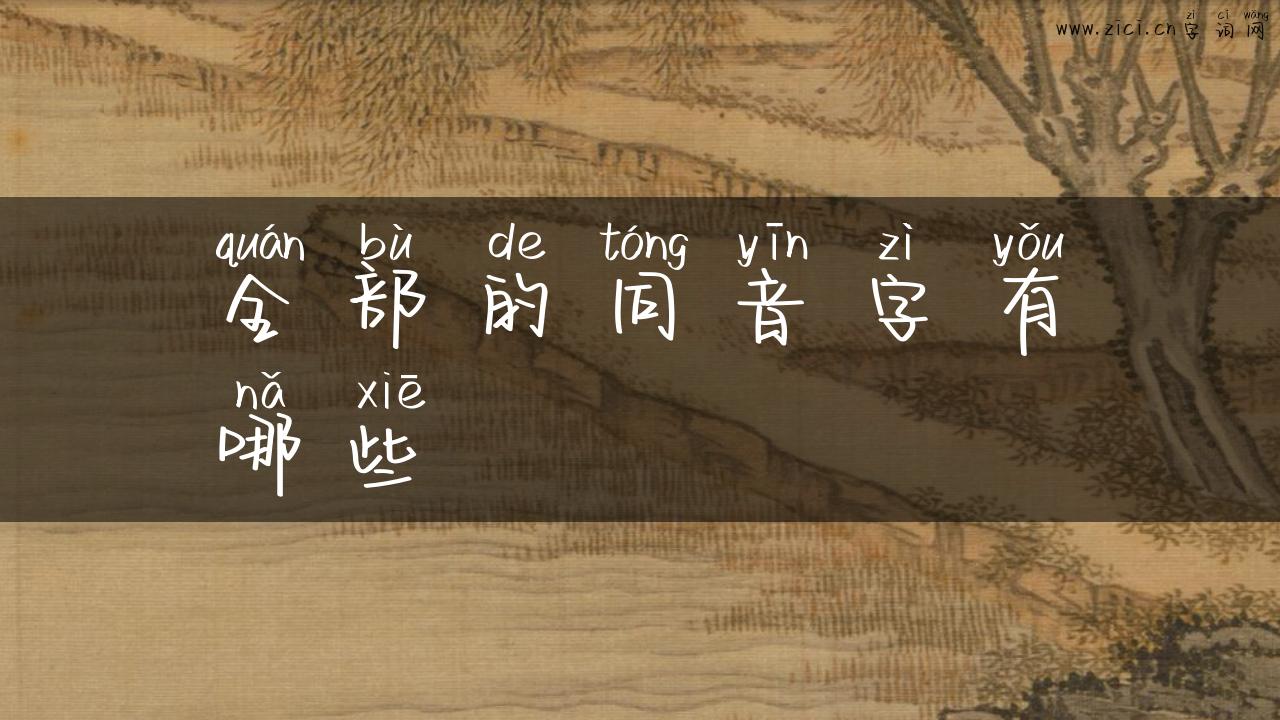 zì cí wǎng
www.zici.cn字词网
quán bù de tóng yīn zì yǒu
全部的同音字有
nǎ xiē
哪些